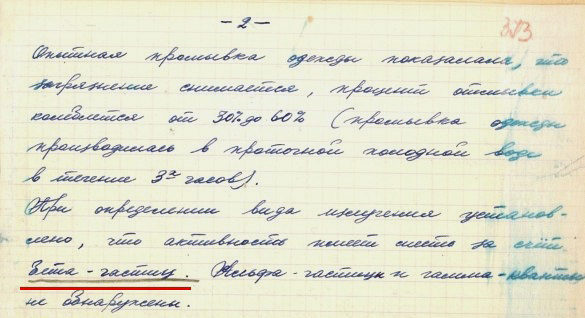 — 2 —
313
Опытная промывка одежды показала, что
загрязнение снимается, процент отмывки
колеблется от 30% до 60% (промывка одежды
производилась в проточной холодной воде
в течение 3х часов).
При определении вида излучения установ-
лено, что активность имеет место за счёт
Бета-частиц. Альфа-частицы и гамма-кванты
не обнаружены.